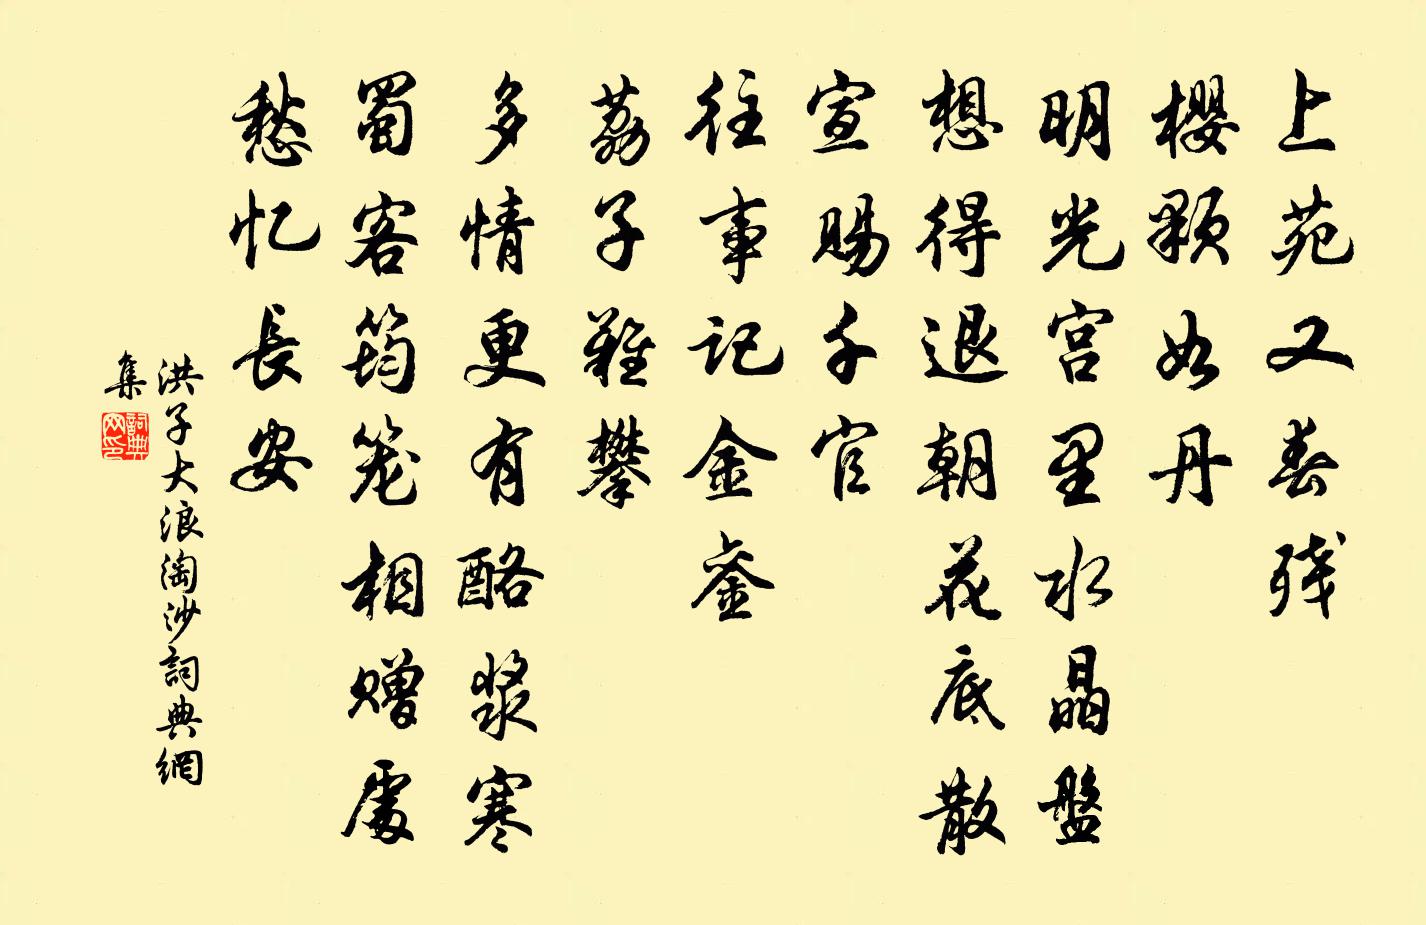 上苑又春残
樱颗如丹
明光宫里水晶盤
想得退朝花底散
宣赐千官
往事记金銮
荔子難攀
多情更有酪漿寒
蜀客筠笼相赠處
愁忆長安
洪子大浪淘沙詞典網
集
詞典
网印